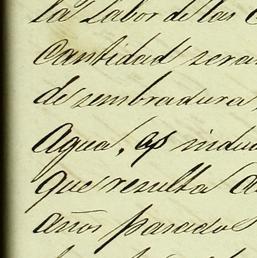 la Labor de las
cantidad sera
de sembradura
Agua, es indu
que resulta a
años pasados